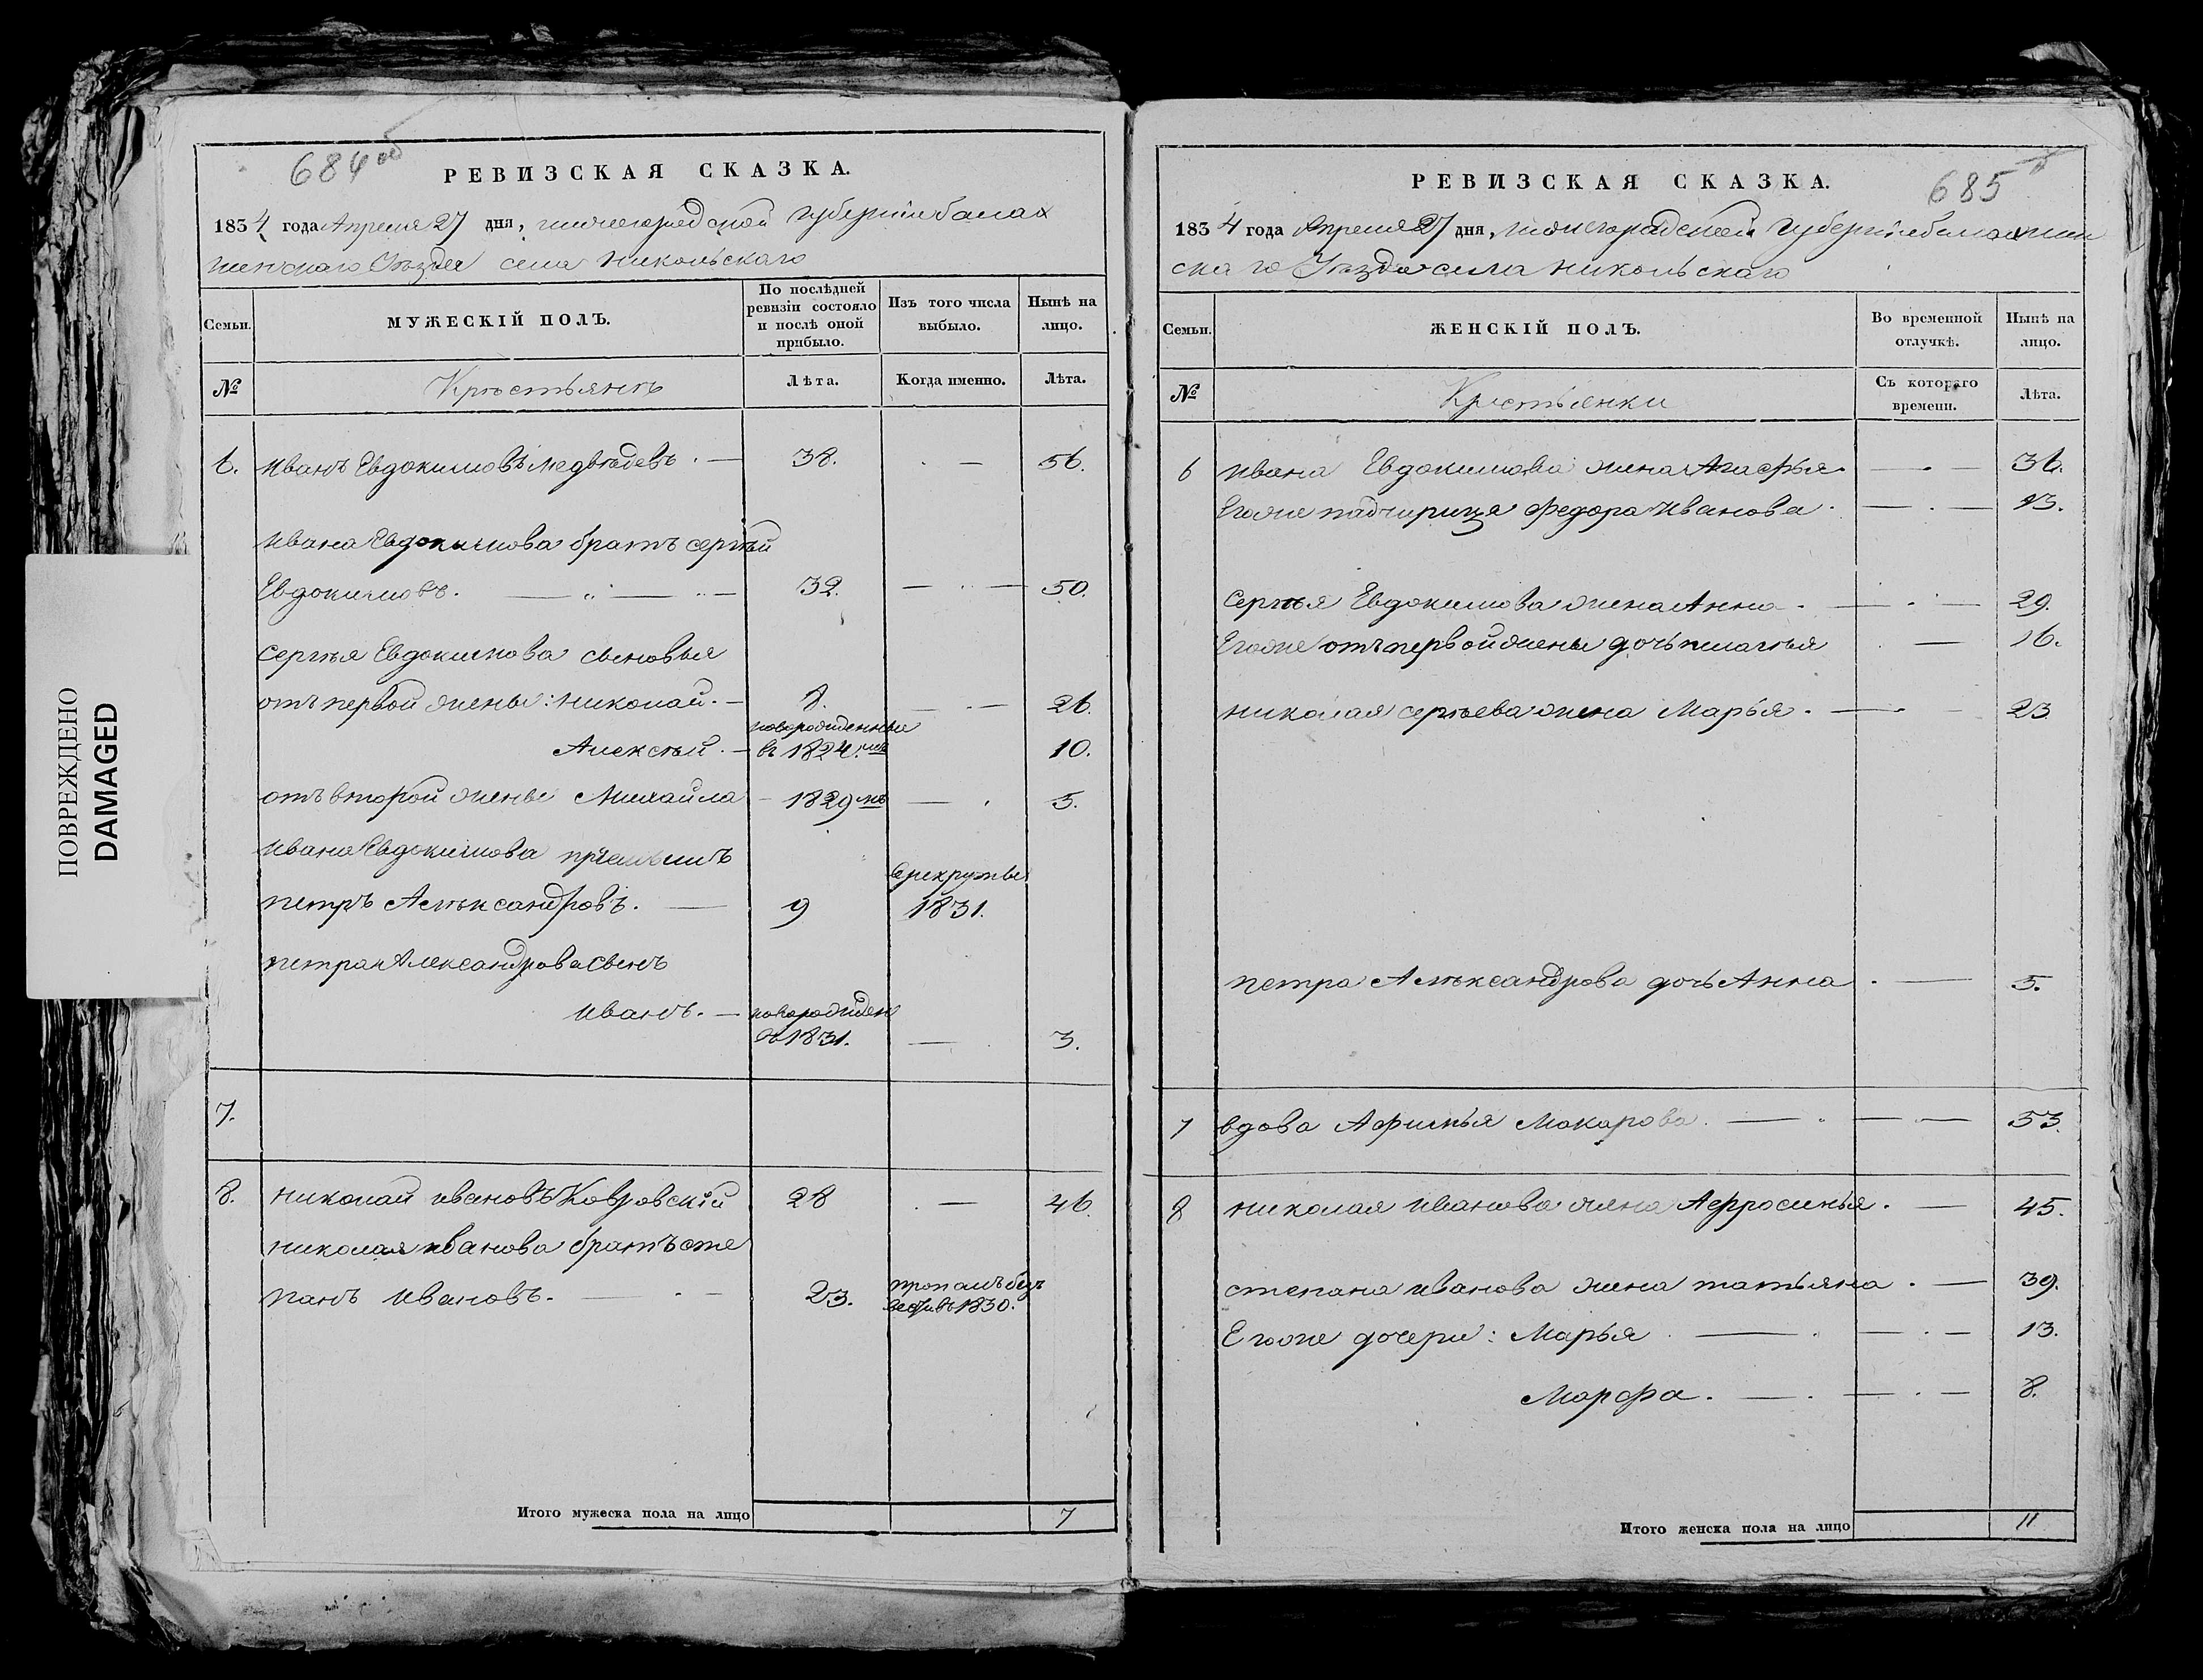 ПОВРЕЖДЕНО
DAMAGED
684 об
РЕВИЗСКАЯ СКАЗКА.
1834 года Апреля 27 дня, нижегородской губерніи балах
нинскаго Уѣзда села никольскаго
Семьи.
МУЖЕСКІЙ ПОЛЪ.
По послѣдней ревизіи состояло и послѣ оной прибыло.
Изъ того числа выбыло.
Нынѣ на лицо.
№
Крѣстьянъ
Лѣта.
Когда именно.
Лѣта.
6. иванъ Евдокимовъ медвѣдевъ. — 38. — 56.
ивана Евдокимова братъ сергѣй
Евдокимовъ. — 32. — 50.
сергѣя Евдокимова сыновья
отъ первой жены: николай. — 8. — 26.
новорожденные
Алексѣй. — въ 1824.мъ 10.
отъ второй жены Михайла — 1829мъ — 5.
ивана Евдокимова пріемышъ
врекруты
петръ Алѣксандровъ. — 9 1831.
петра Александрова сынъ
иванъ. — новорожден
въ 1831. — 3.
7.
8. николай ивановъ Ковровскій 28 — 46.
николая иванова братъ сте
панъ ивановъ. — 23. пропалъ безъ
вести въ 1830.
Итого мужеска пола на лицо 7
685
РЕВИЗСКАЯ СКАЗКА.
1834 года Апреля 27 дня, нижегородской губерніи балахнин
скаго Уѣзда села никольскаго
Семьи.
ЖЕНСКІЙ ПОЛЪ.
Во временной отлучкѣ.
Нынѣ на лицо.
№
Крестьянки
Съ котораго времени.
Лѣта.
6 ивана Евдокимова жена Агафья. — 36.
Егоже падчирица федора иванова. — 13.
сергѣя Евдокимова жена Анна. — 29.
Егоже отъ первой жены дочь пелагѣя — 16.
николая сергѣева жена Марья. — 23
петра Алѣксандрова дочь Анна. — 5.
7 вдова Афимья Макарова. — 53.
8 николая иванова жена Афросинья. — 45.
степана иванова жена татьяна. — 39.
Егоже дочери: Марья. — 13.
Марфа. — 8.
Итого женска пола на лицо 11